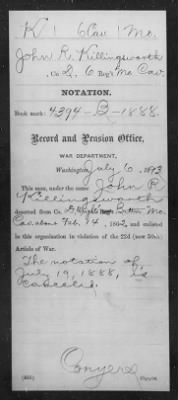 K | 6 Cav | Mo.
John R. Killingsworth
, Co. L, 6 Reg't Mo. Cav.
NOTATION.
Book mark: 4394-B-1888.
Record and Pension Office,
WAR DEPARTMENT,
Washington, July 6, 1893
This man, under the name John R.
Killingsworth
deserted from Co. Wright's Batt'n Mo.
Cavalry Feb. 14, 1862, and enlisted in
this organization in violation of the 22d (now 50th)
Article of War.
The notation of
July 19, 1888, is
canceled.
Conyers
Copyist.